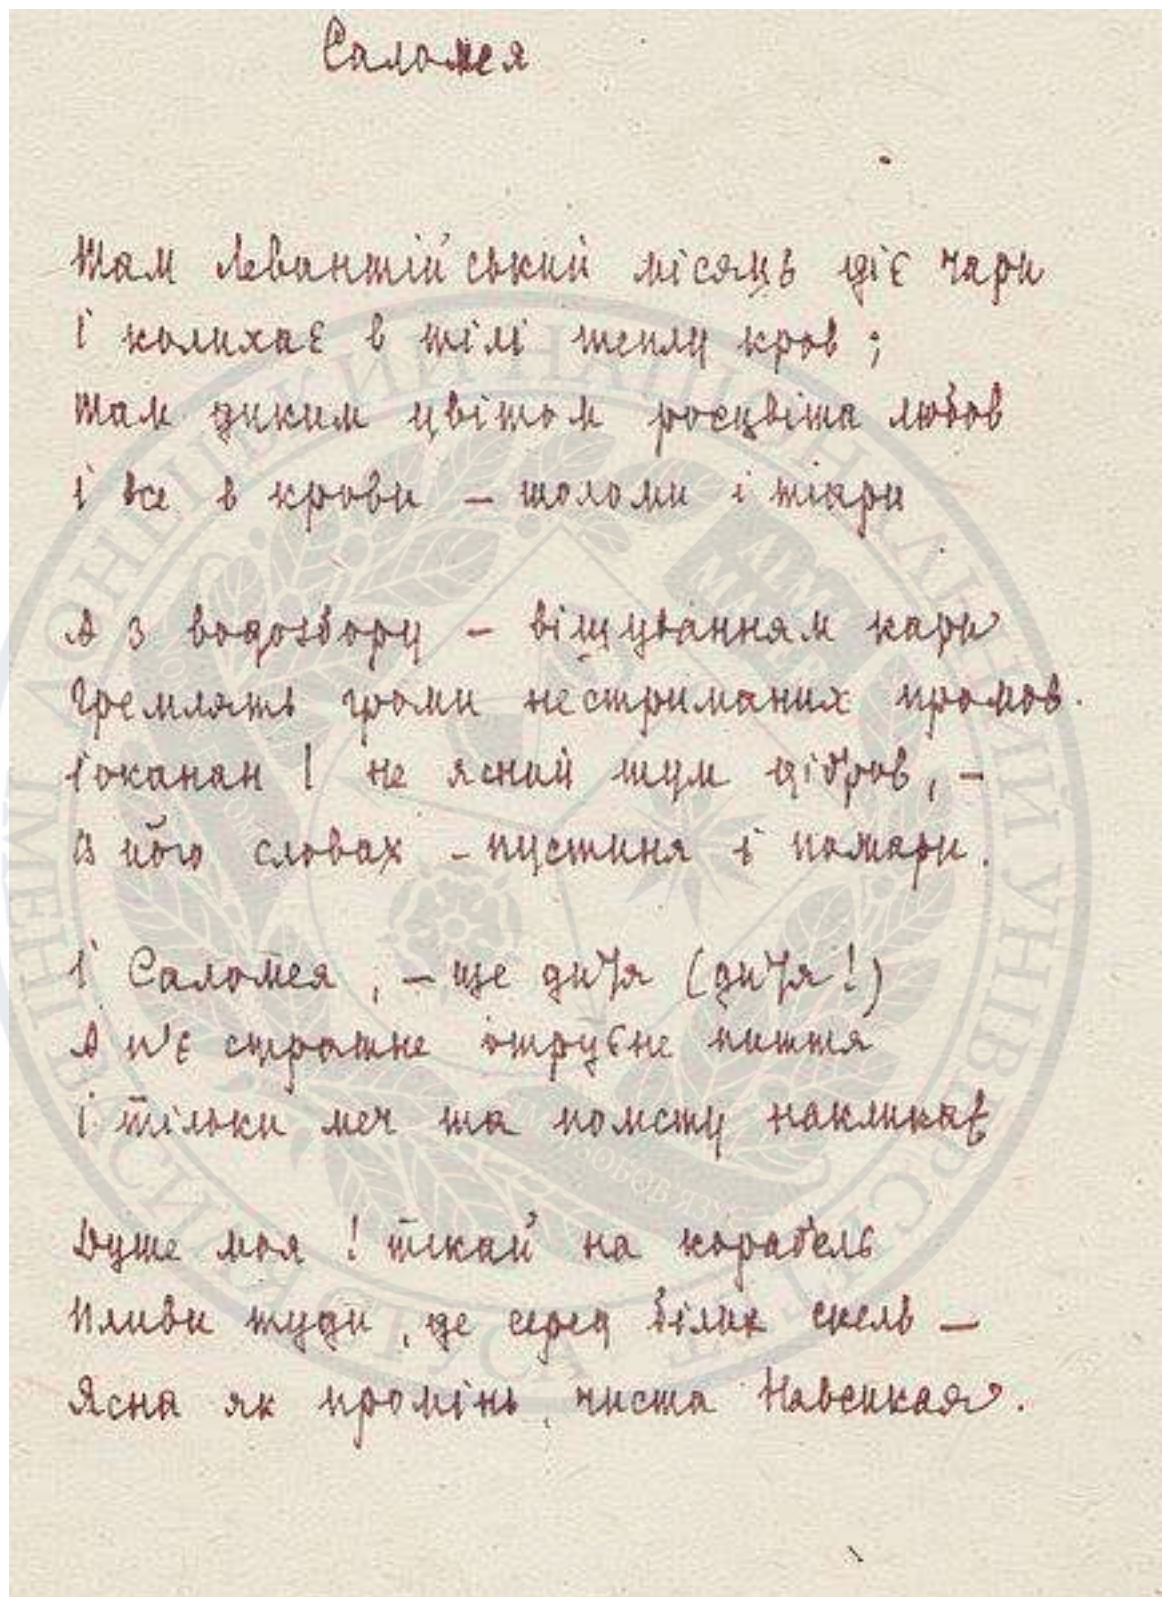 Саломея
Там Левантійський місяць діє чари
І колихає в тілі теплу кров;
Там диким цвітом росцвіта любов
І все в крови – шоломи і тіари
А з водозбору – віщуванням кари
Гремлять громи нестриманих промов.
Іоканан! не ясний шум дібров, –
В його словах – пустиня і пожари.
І Саломея, – ще дитя (дитя!)
А п'є страшне отруєне пиття
І тільки меч та помсту накликає
Душе моя! тікай на корабель
Пливи туди, де серед білих скель –
Ясна як промінь, чиста Навсикая.
ДОНЕЦЬКИЙ НАЦІОНАЛЬНИЙ УНІВЕРСИТЕТ
ІМЕНІ ВАСИЛЯ СТУСА
ALMA MATER